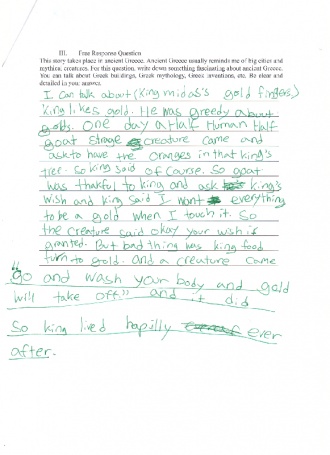 III. Free Response Question
This story takes place in ancient Greece. Ancient Greece usually reminds me of big cities and
mythical creatures. For this question, write down something fascinating about ancient Greece.
You can talk about Greek buildings, Greek mythology, Greek inventions, etc. Be clear and
detailed in your answer.
I can talk about (King midas's gold fingers.)
King likes gold. He was greedy about
golds. One day a Half Human Half
goat strage creature came and
ask to have the oranges in that king's
tree. So king said of course. So goat
was thakful to king and ask king's
wish and king said I want everything
to be a gold when I touch it. So
the creature said okay your wish if
granted. But bad thing has king food
turn to gold. and a creature came
"go and wash your body and gold
will take off." and it did
So king lived happilly ever
after.